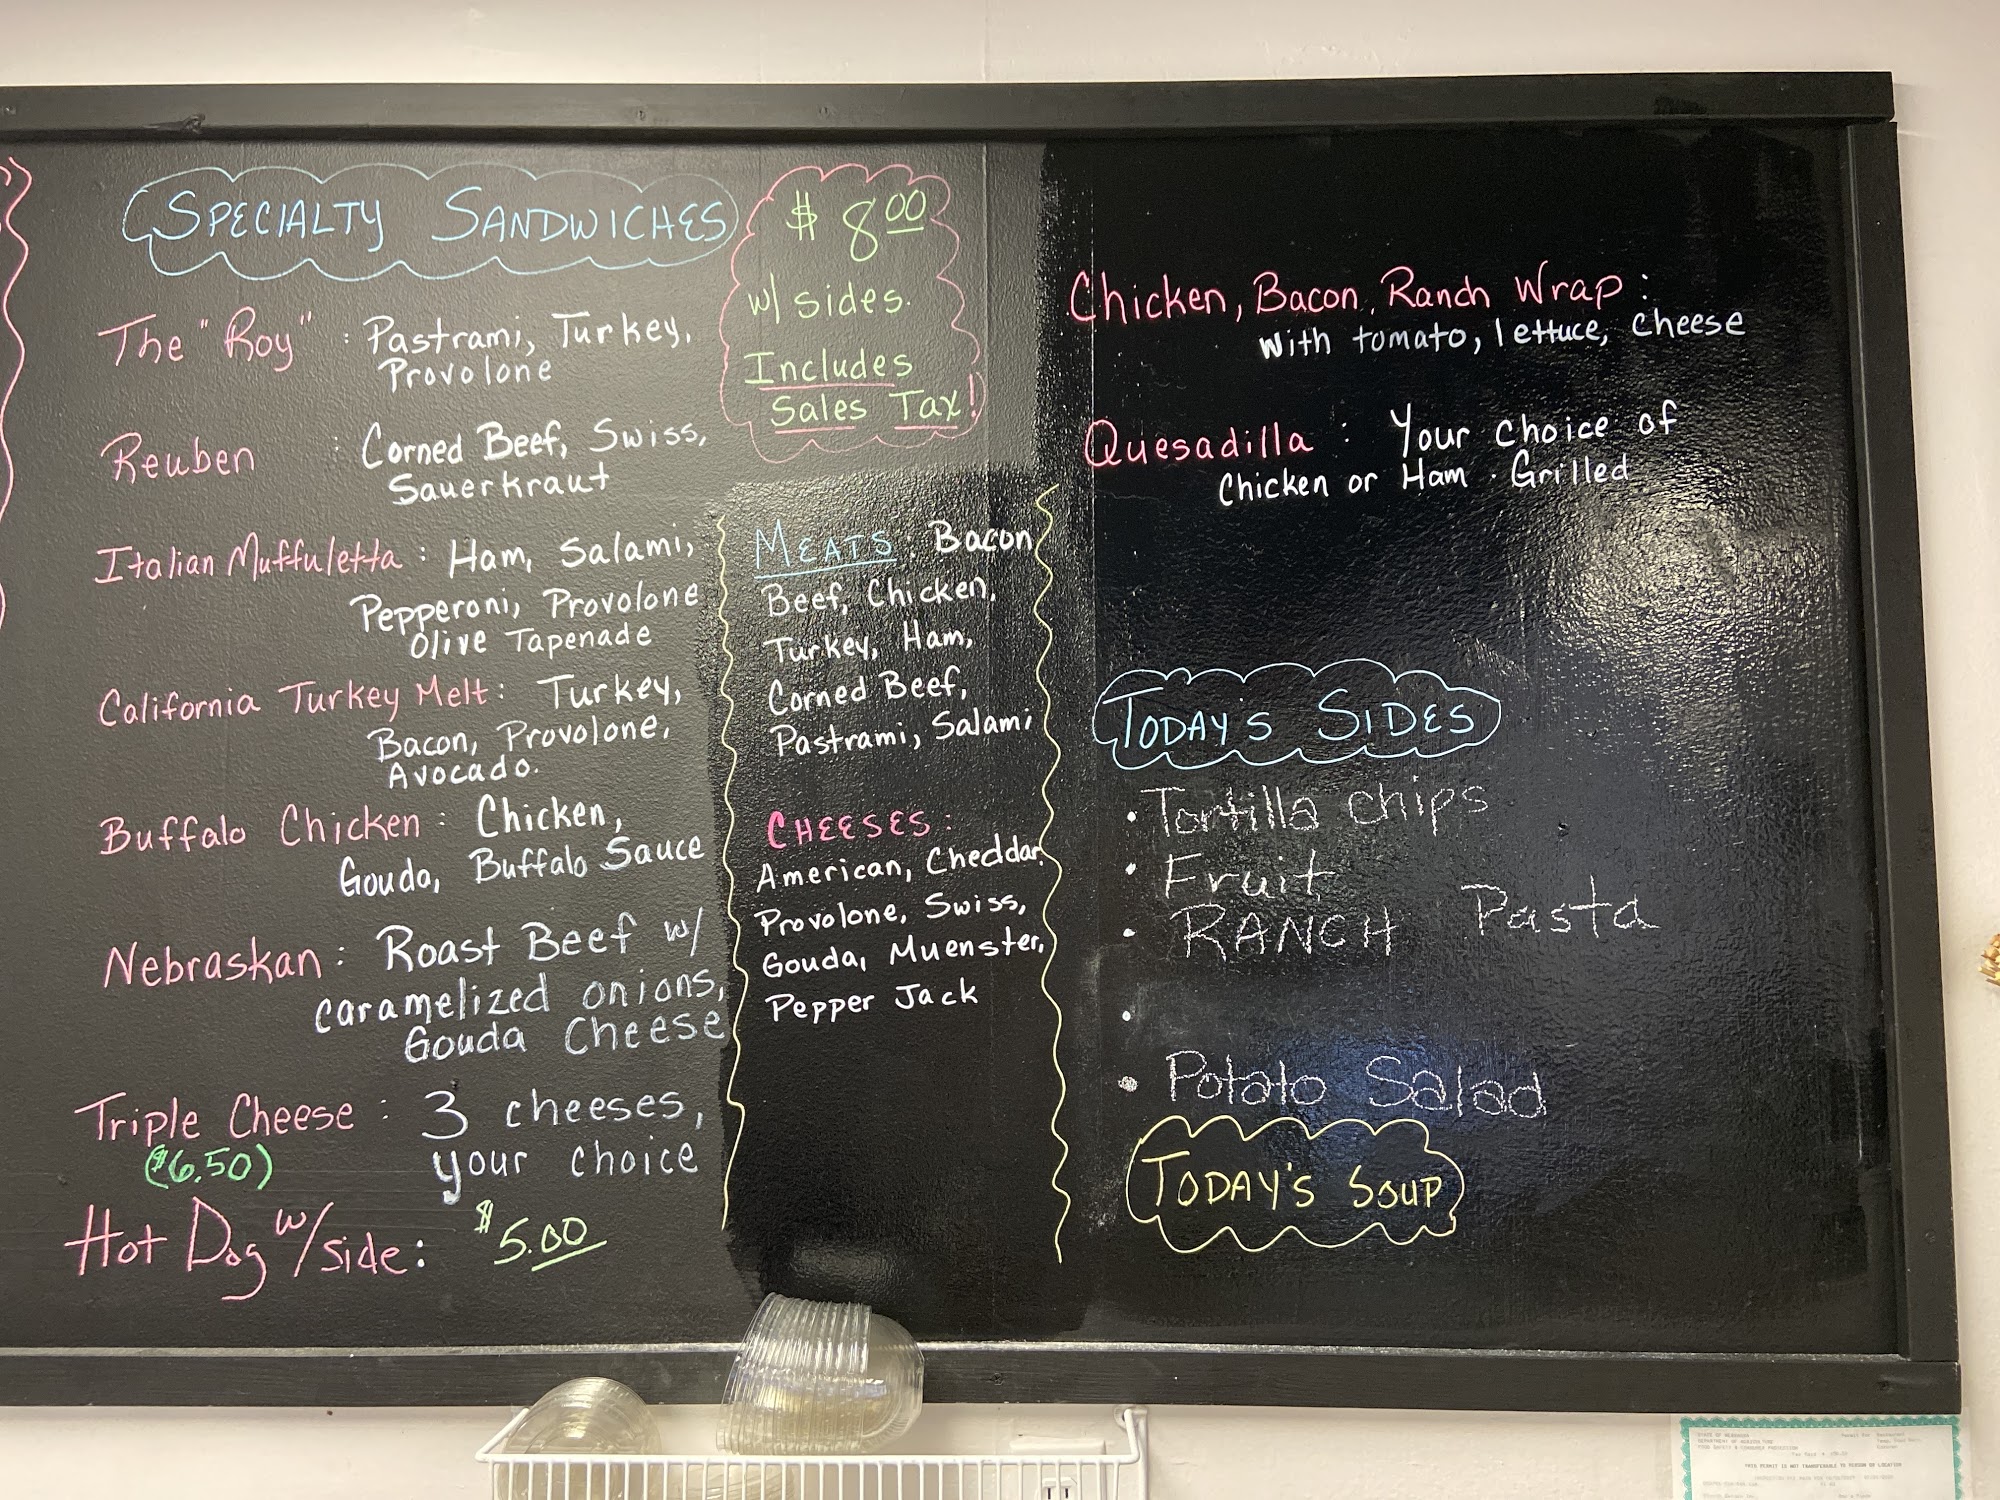 SPECIALTY SANDWICHES
$8.00
w/ sides.
Includes
Sales Tax!
The "Roy" : Pastrami, Turkey,
Provolone
Reuben : Corned Beef, Swiss,
Sauerkraut
Italian Muffuletta : Ham, Salami,
Pepperoni, Provolone
Olive Tapenade
California Turkey Melt : Turkey,
Bacon, Provolone,
Avocado.
Buffalo Chicken : Chicken,
Gouda, Buffalo Sauce
Nebraskan : Roast Beef w/
caramelized onions,
Gouda Cheese
Triple Cheese : 3 cheeses,
($6.50) your choice
Hot Dog w/side : $5.00
MEATS : Bacon
Beef, Chicken,
Turkey, Ham,
Corned Beef,
Pastrami, Salami
CHEESES :
American, Cheddar,
Provolone, Swiss,
Gouda, Muenster,
Pepper Jack
Chicken, Bacon, Ranch Wrap :
with tomato, lettuce, cheese
Quesadilla : Your choice of
Chicken or Ham . Grilled
TODAY'S SIDES
• Tortilla chips
• Fruit
• RANCH Pasta
•
• Potato Salad
TODAY'S SOUP
STATE OF NEBRASKA
DEPARTMENT OF AGRICULTURE
THIS PERMIT IS NOT TRANSFERABLE TO PERSON OR LOCATION